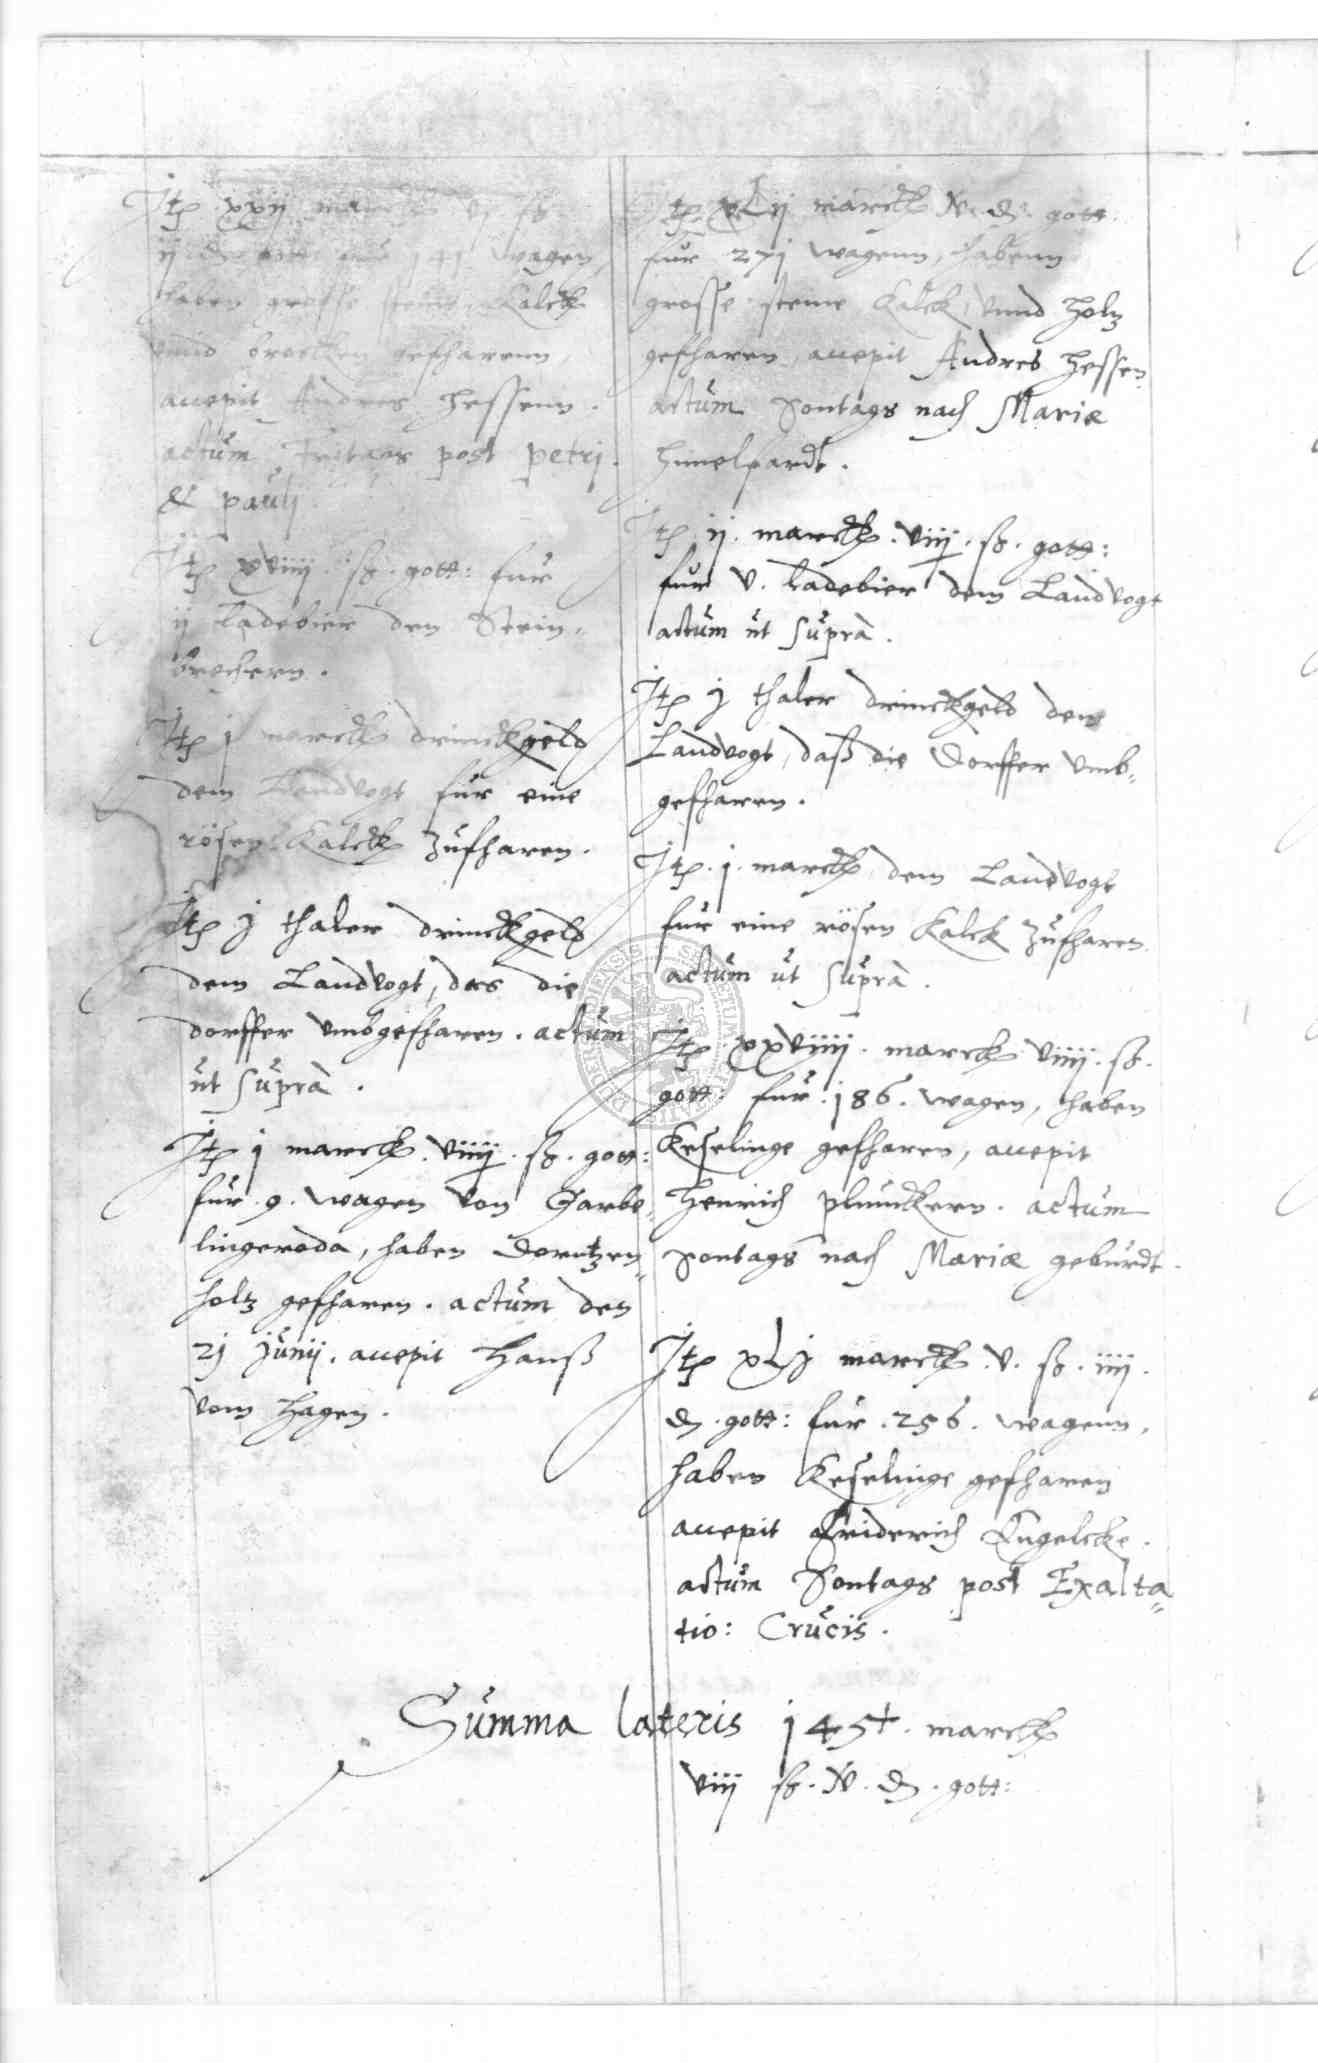 Jtp xxij marck vj ß
ij d gott: fur 141 wagen,
haben grosse steine, Kalck
vnnd brocken gefharenn,
accepit Andres Hessenn.
actum Fritags post petri
& pauli
Jtp xviiij. ß. gott: fur
ij ladebier den Stein-
brechern.
Jtp j marck drinckgeld
dem Landvogt fur eine
rösen Kalck zufharen.
Jtp j thaler drinckgeld
dem Landvogt, das die
dorffer vmbgefharen. actum
ut supra.
Jtp j marck. viiij. ß. gott:
fur. 9. wagen von Garbe-
lingeroda, haben Dorntzen-
holtz gefharen. actum den
2j junij. accepit Hanß
vom Hagen.
Jtp xLij marck N. d. gott.
fur 27j wagenn, habenn
grosse steine Kalck, vnnd holtz
gefharen, accepit Andres Hessen
actum Sontags nach Mariæ
himelfardt.
Jtp ij. marck. viiij. ß. gott:
fur v. ladebier dem Landvogt
actum ut supra.
Jtp j thaler drinckgeld dem
Landvogt, daß die Dorffer vmb-
gefharen.
Jtp. j. marck dem Landvogt
fur eine rösen Kalck zufharen.
actum ut supra.
Jtp xxviiij. marck viiij. ß.
gott: fur. 186. wagen, haben
Keselinge gefharen, accepit
Henrich plunckern. actum
Sontags nach Mariæ geburdt.
Jtp xLj marck. v. ß. iiij.
d. gott: fur. 256. wagenn,
haben Keselinge gefharen
accepit Friderich Engelcke.
actum Sontags post Exalta-
tio: Crucis.
Summa lateris 145+. marck
viij ß. N. d. gott: